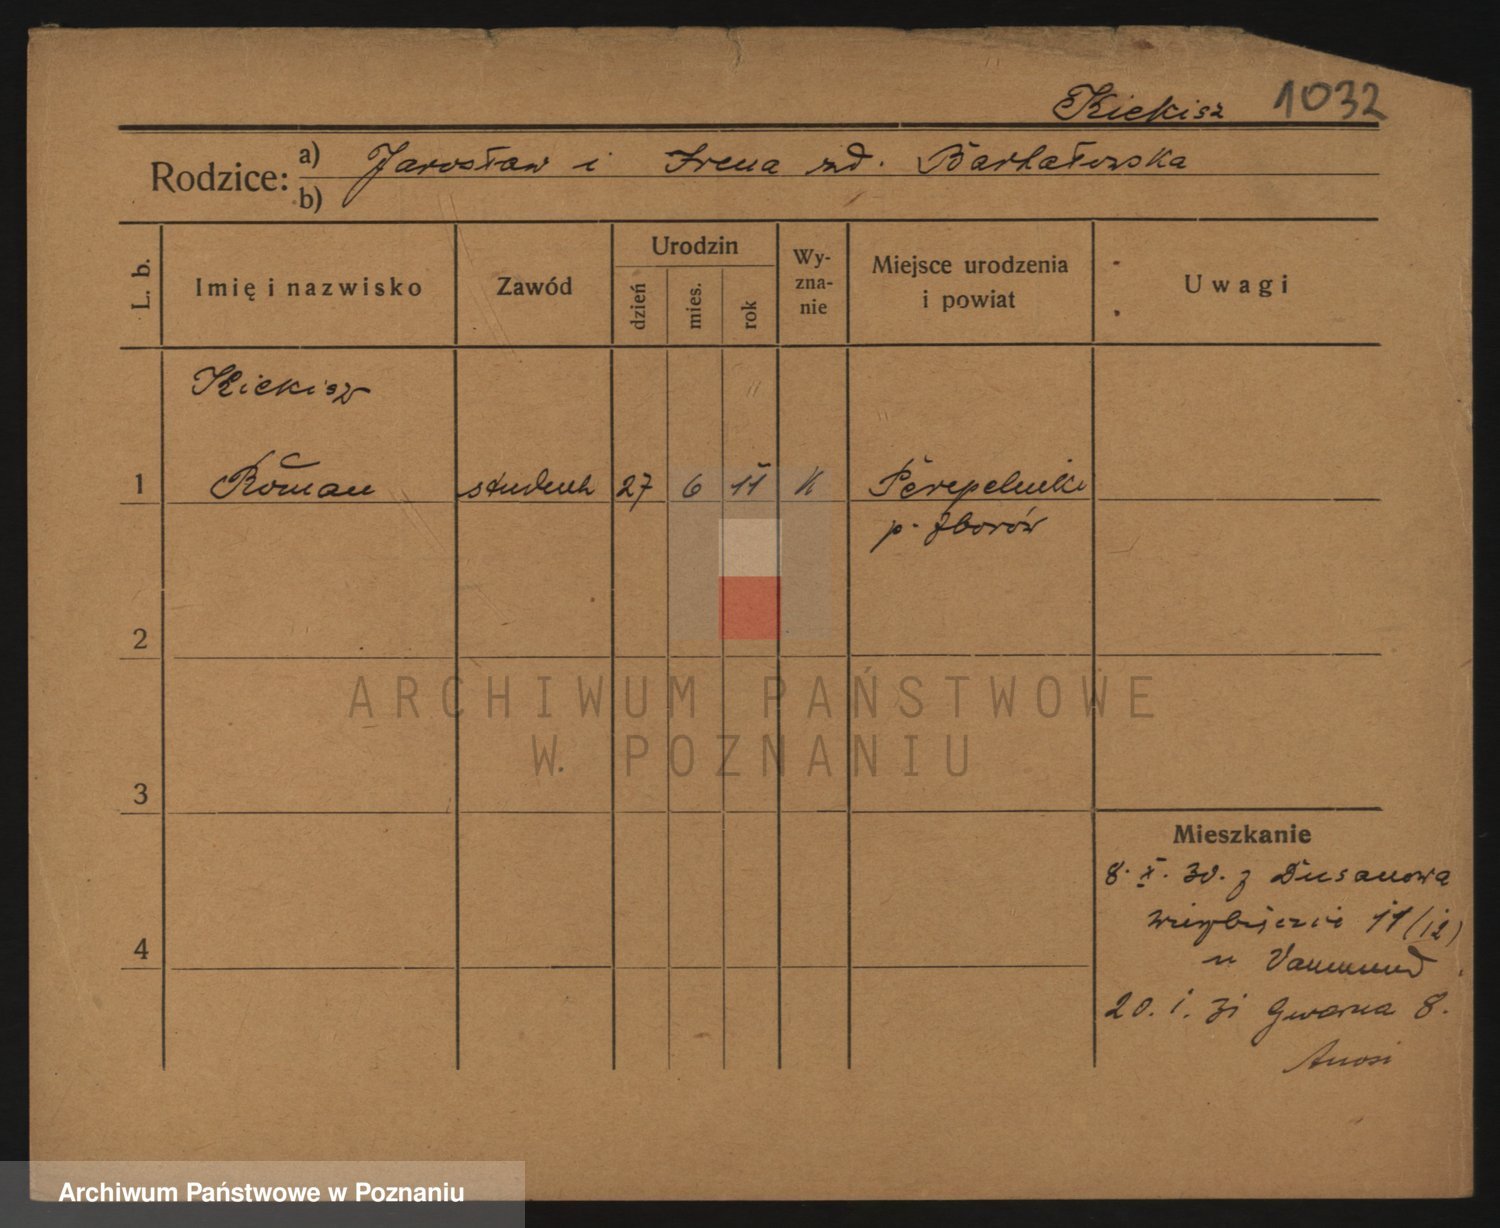 Kiekisz 1032
Rodzice: a) Jarosław i Irena zd. Barhałowska
b)
L. b. Imię i nazwisko Zawód Urodzin Wy-zna-nie Miejsce urodzenia i powiat Uwagi
dzień mies. rok
Kiekisz
1 Roman student 27 6 11 K Perepelniki
p. Zborów
2
ARCHIWUM PAŃSTWOWE
W POZNANIU
3
Mieszkanie
8. X. 30. z Dusanowa
4 Wierzbięcice 11/12)
u
20. I. 31 Gwarna 8.
Archiwum Państwowe w Poznaniu